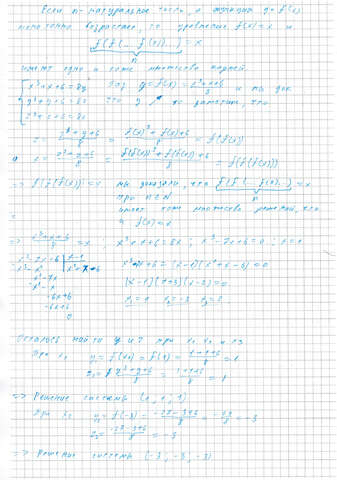 Если n - натуральное число, а функция y = f(x)
монотонно возрастает, то уравнения f(x) = x и
f(f(... f(x))...) = x
n
имеют одно и то же множество корней.
x³+x+6=8y
y³+y+6=8z
z³+z+6=8x
y = f(x) = x³+x+6/8 и
z = y³+y+6/8 = f(x)³+f(x)+6/8 = f(f(x))
x = z³+z+6/8 = f(f(x))³+f(f(x))+6/8 = f(f(f(x)))
=> f(f(f(x))) = x мы доказали, что f(f(... f(x)...) = x
при n ∈ N n
имеет тоже множество решений, что
и f(x) = x
=> x³+x+6/8 = x ; x³+x+6=8x ; x³-7x+6=0 ; x=1
x³-7x+6 | x-1
x³-x² | x²+x-6
x²-7x
x²-x
-6x+6
-6x+6
0
x³-7x+6 = (x-1)(x²+x-6)=0
(x-1)(x+3)(x-2)=0
x₁=1 x₂=-3 x₃=2
Осталось найти y и z при x₁ x₂ и x₃
При x₁ y₁ = f(x₁) = f(1) = 1+1+6/8 = 1
z₁ = y³+y+6/8 = 1+1+6/8 = 1
=> Решение системы (1, 1, 1)
При x₂ y₂ = f(-3) = -27-3+6/8 = -24/8 = -3
z₂ = -27-3+6/8 = -3
=> Решение системы (-3, -3, -3)